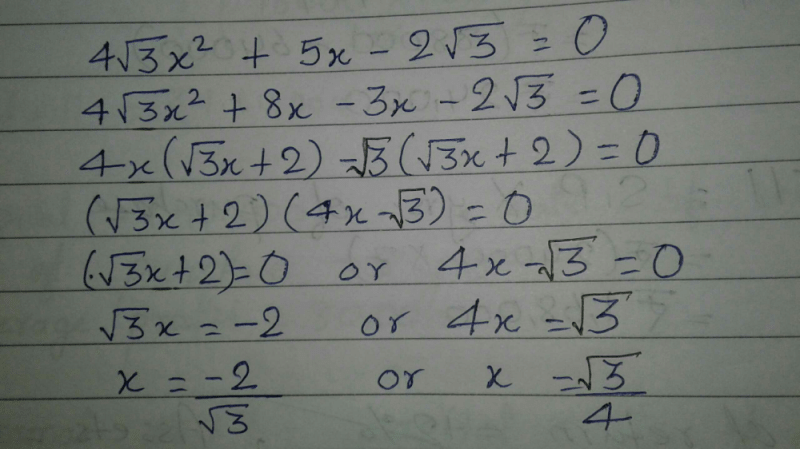 4√3x² + 5x - 2√3 = 0
4√3x² + 8x - 3x - 2√3 = 0
4x(√3x+2) -√3(√3x+2) = 0
(√3x+2)(4x-√3) = 0
(√3x+2)=0 or 4x-√3 = 0
√3x = -2 or 4x = √3
x = -2/√3 or x = √3/4